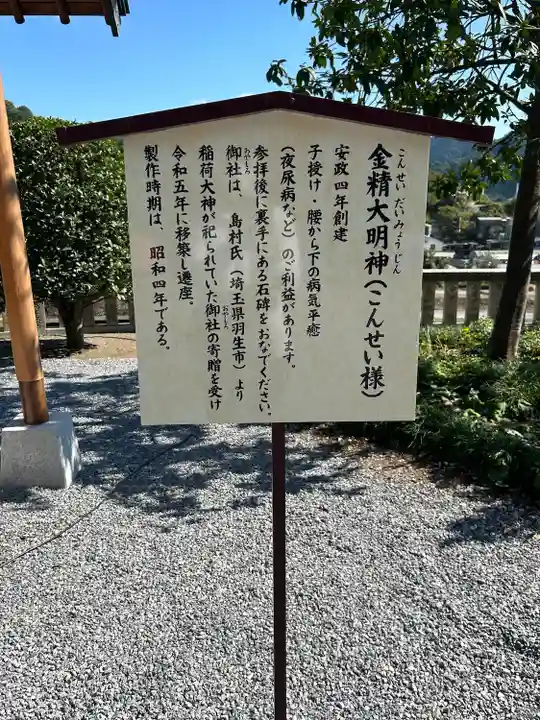 金精大明神(こんせい様)
こんせいだいみょうじん
安政四年創建
子授け・腰から下の病気平癒
(夜尿病など)のご利益があります。
参拝後に裏手にある石碑をおなでください。
御社は、島村氏(埼玉県羽生市)より
おやしろ
稲荷大神が祀られていた御社の寄贈を受け
おやしろ
令和五年に移築し遷座。
製作時期は、昭和四年である。